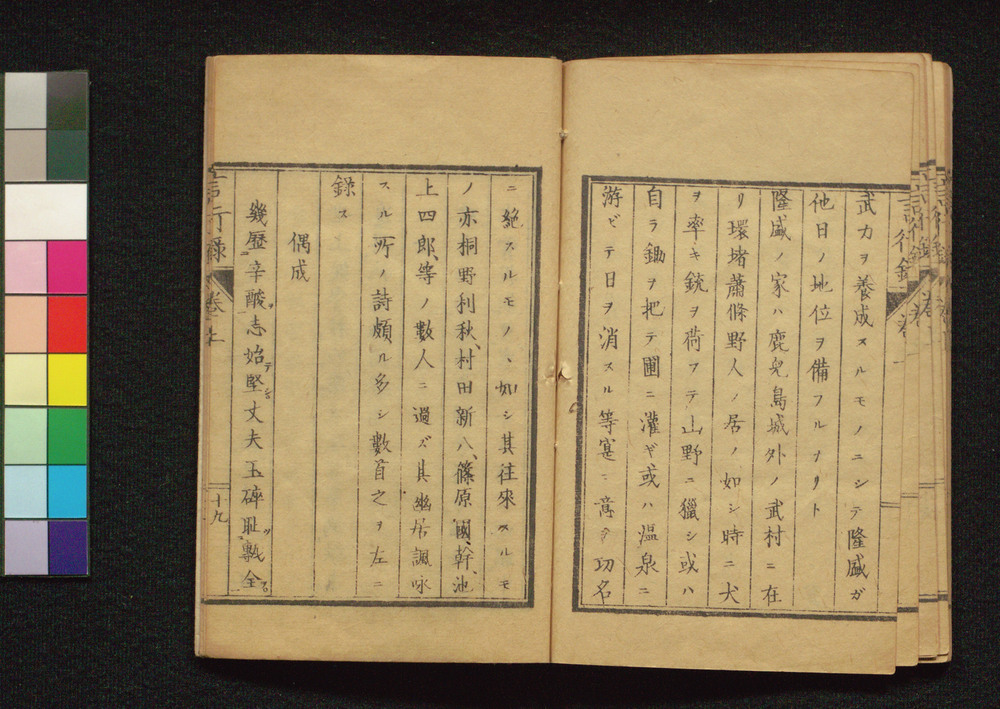 武力ヲ養成スルモノニシテ隆盛ガ
他日ノ地位ヲ備フルナリト
隆盛ノ家ハ鹿兒島城外ノ武村ニ在
リ環堵蕭條野人ノ居ノ如シ時ニ犬
ヲ率キ銃ヲ荷フテ山野ニ獵シ或ハ
自ラ鋤ヲ把テ圃ニ灌ギ或ハ温泉ニ
游ビテ日ヲ消スル等寔ニ意ヲ功名
ニ絶スルモノヽ如シ其往來スルモ
ノ亦桐野利秋、村田新八、篠原國幹、池
上四郎、等ノ數人ニ過ズ其幽居諷咏
スル所ノ詩頗ル多シ數首之ヲ左ニ
録ス
偶成
幾歴辛酸志始堅丈夫玉碎耻甎全
言行録
卷之
十九